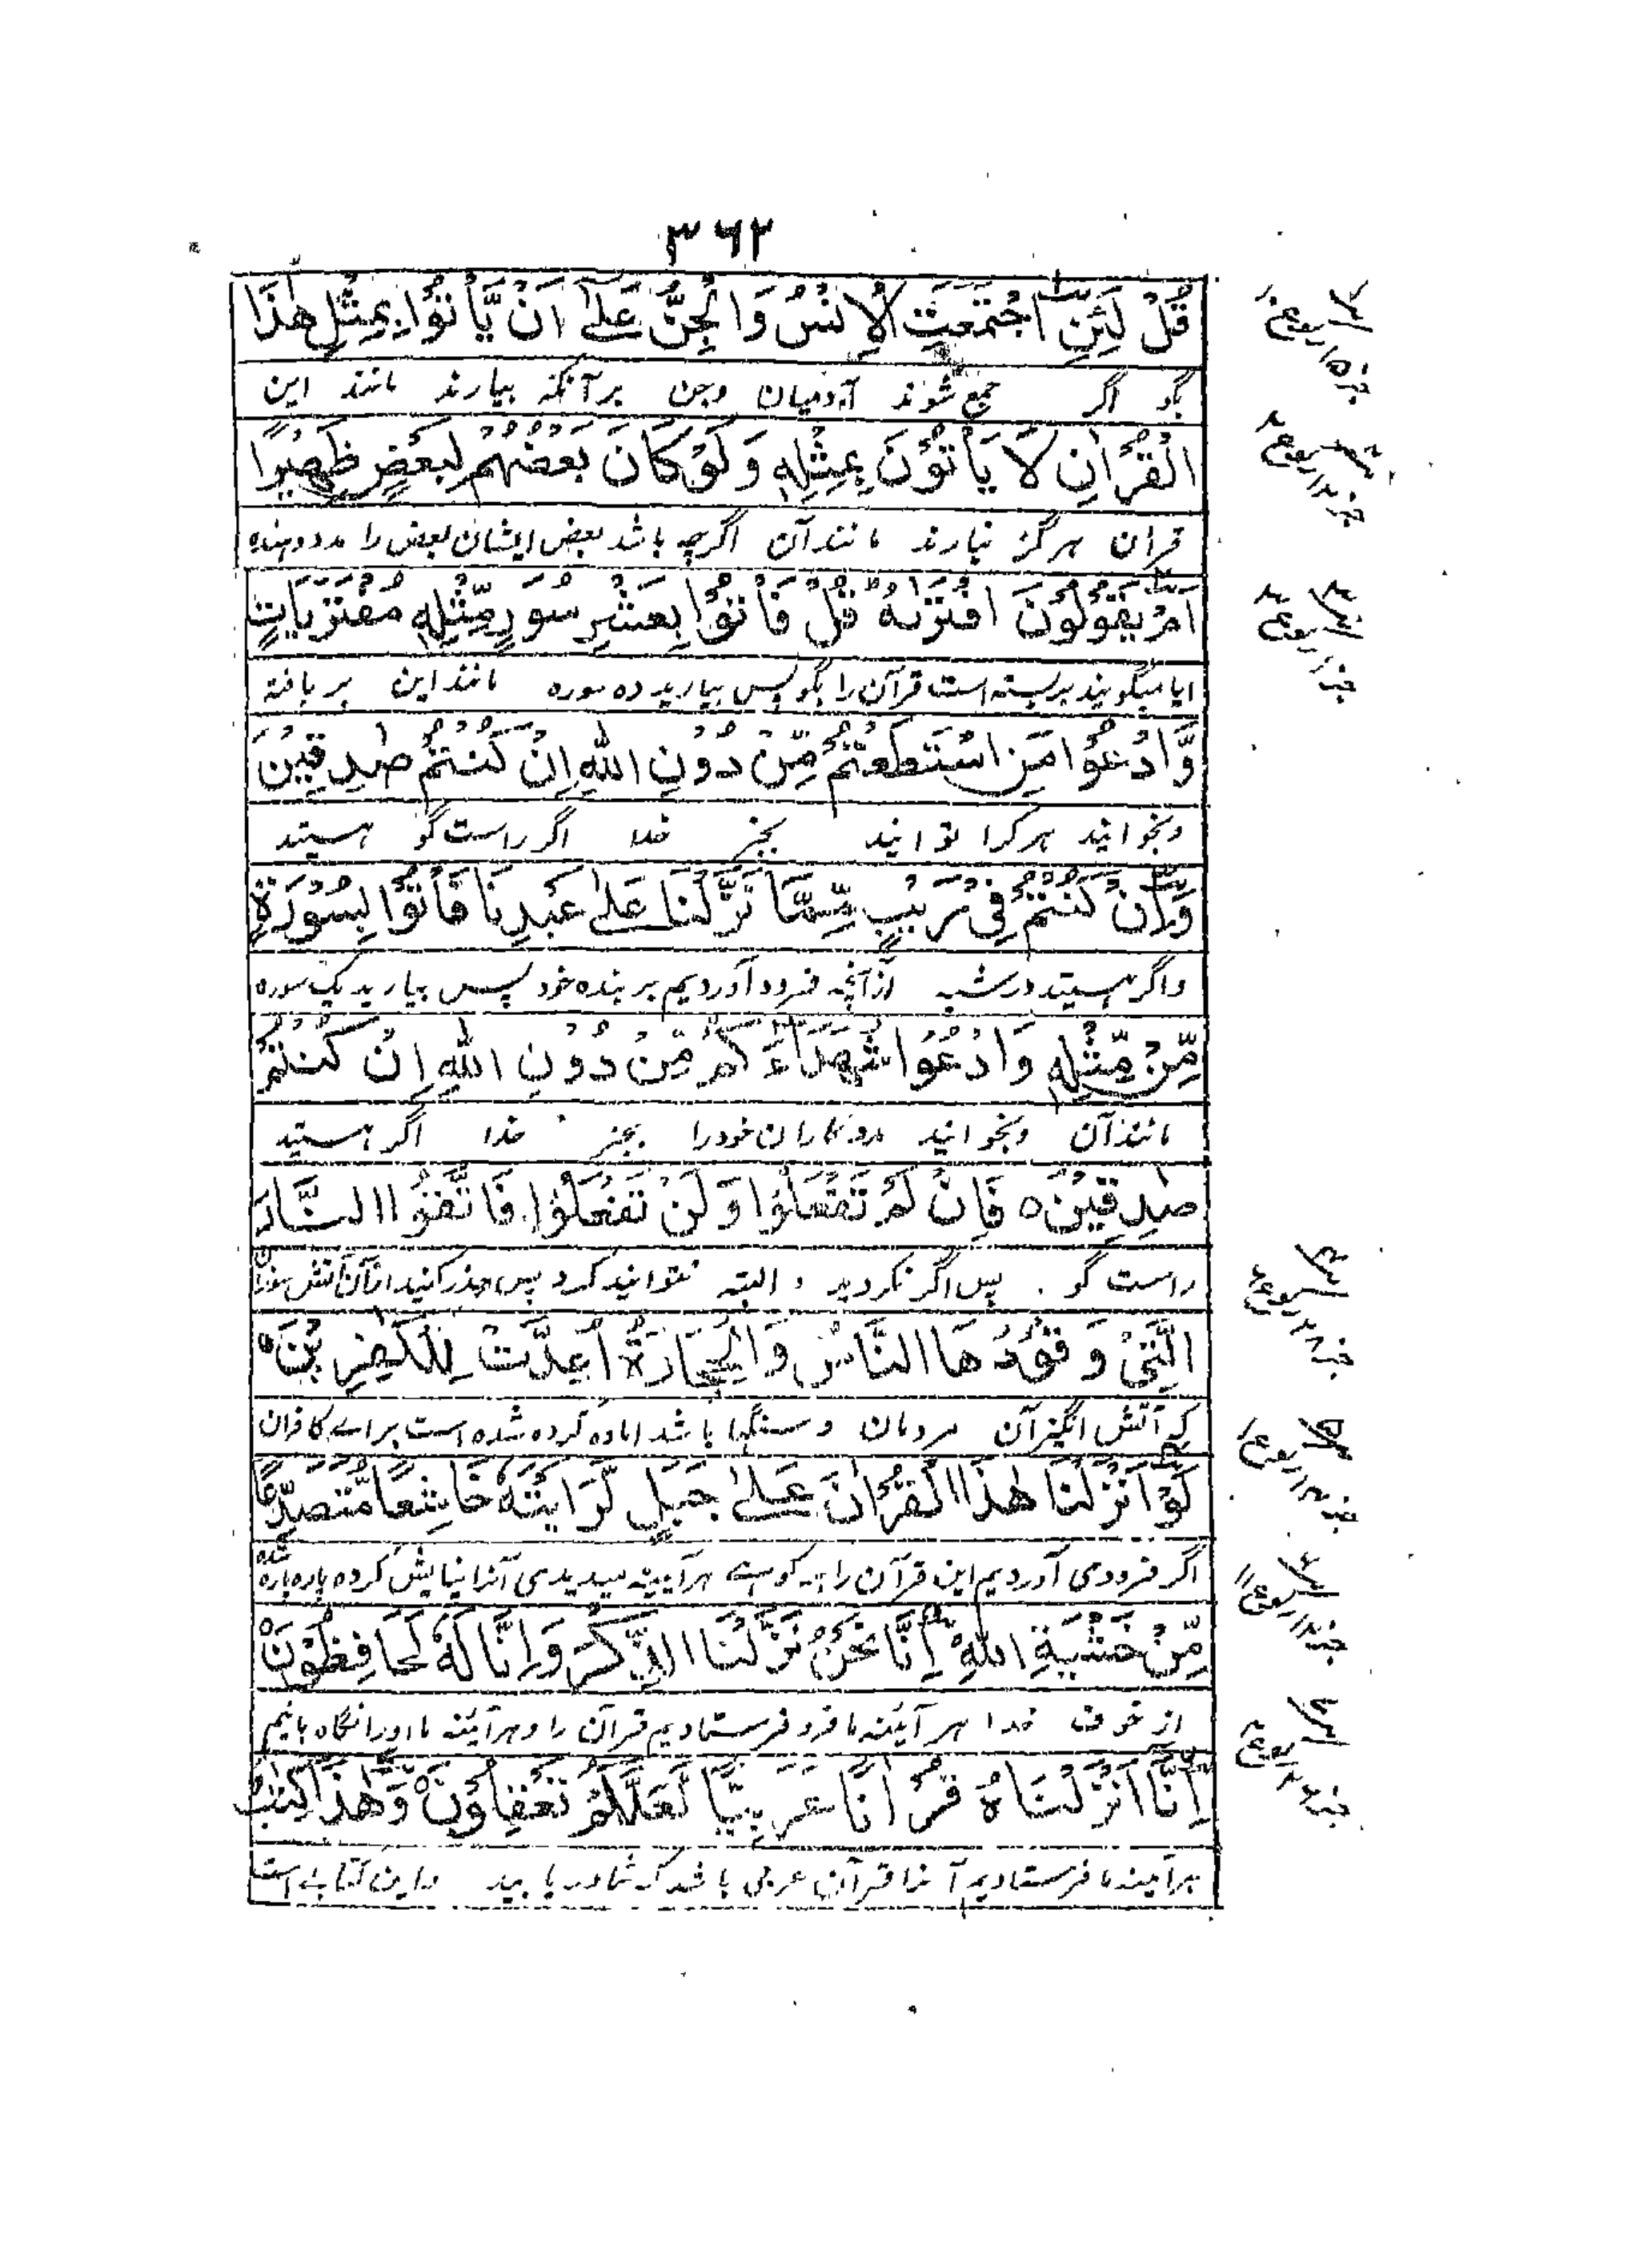 ۳۶۲
قُلْ لَئِنِ اجْتَمَعَتِ الْاِنْسُ وَالْجِنُّ عَلٰۤی اَنْ یَّاْتُوْا بِمِثْلِ هٰذَا
بگو اگر جمع شوند آدمیان وجن برآنکہ بیارند مانند این
الْقُرْاٰنِ لَا یَاْتُوْنَ بِمِثْلِهٖ وَلَوْ كَانَ بَعْضُهُمْ لِبَعْضٍ ظَهِیْرًا
قران ہرگز نیارند مانندآن اگرچہ باشد بعض ایشان بعض را مددہندہ
اَمْ یَقُوْلُوْنَ افْتَرٰىهُ قُلْ فَاْتُوْا بِعَشْرِ سُوَرٍ مِّثْلِهٖ مُفْتَرَیَاتٍ
ایا میگویند بربستہ است قرآن را بگو پس بیارید دہ سورہ ماننداین بربافتہ
وَّادْعُوْا مَنِ اسْتَطَعْتُمْ مِّنْ دُوْنِ اللّٰهِ اِنْ كُنْتُمْ صٰدِقِیْنَ
وبخوانید ہرکرا توانید بجز خدا اگر راست گو ہستید
وَاِنْ كُنْتُمْ فِیْ رَیْبٍ مِّمَّا نَزَّلْنَا عَلٰی عَبْدِنَا فَاْتُوْا بِسُوْرَةٍ
واگر ہستید درشبہ ازآنچہ فرود آوردیم بر بندہ خود پس بیارید یک سورہ
مِّنْ مِّثْلِهٖ وَادْعُوْا شُهَدَآءَكُمْ مِّنْ دُوْنِ اللّٰهِ اِنْ كُنْتُمْ
مانندآن وبخوانید مددگاران خودرا بجز خدا اگر ہستید
صٰدِقِیْنَ ہ فَاِنْ لَّمْ تَفْعَلُوْا وَلَنْ تَفْعَلُوْا فَاتَّقُوا النَّارَ
راست گو . پس اگر نکردید و البتہ نتوانید کرد پس حذر کنید ازآن آتش
الَّتِیْ وَقُوْدُهَا النَّاسُ وَالْحِجَارَةُ اُعِدَّتْ لِلْكٰفِرِیْنَ ہ
کہ آتش انگیز آن مردمان و سنگہا باشد امادہ کردہ شدہ است براے کافران
لَوْ اَنْزَلْنَا هٰذَا الْقُرْاٰنَ عَلٰی جَبَلٍ لَّرَاَیْتَهٗ خَاشِعًا مُّتَصَدِّعًا
اگر فرودی آوردیم این قرآن را بہ کوہے ہرآیینہ میدیدی آنرا نیایش کردہ پارہ پارہ شدہ
مِّنْ خَشْیَةِ اللّٰهِ اِنَّا نَحْنُ نَزَّلْنَا الذِّكْرَ وَاِنَّا لَهٗ لَحَافِظُوْنَ
از خوف خدا ہر آئینہ ما فرو فرستادیم قرآن را وہرآئینہ ما اورا نگاہ بانیم
اِنَّا اَنْزَلْنَاهُ قُرْاٰنًا عَرَبِیًّا لَّعَلَّكُمْ تَعْقِلُوْنَ وَهٰذَا كِتٰبٌ
ہرآیینہ ما فرستادیم آنرا قرآن عربی باشد کہ شما دریابید واین کتابے است